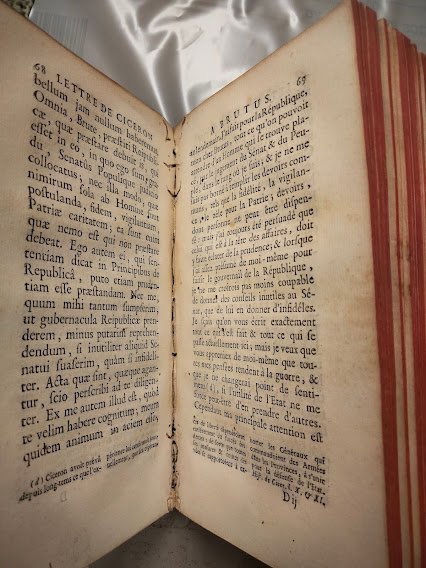 68 LETTRE DE CICERON
bellum jam nullum haberemus.
Omnia, Brute, præstiti Reipubli-
cæ, quæ præstare debuit is, qui
esset in eo, in quo ego sum, gra-
du, Senatus Populique judicio
collocatus; nec illa modo, quæ
nimirum sola ab Homine sunt
postulanda, fidem, vigilantiam,
Patriæ caritatem; ea sunt enim
quæ nemo est qui non præstare
debeat. Ego autem ei, qui sen-
tentiam dicat in Principibus de
Republicâ, puto etiam pruden-
tiam esse præstandam. Nec me,
quum mihi tantum sumpserim,
ut gubernacula Reipublicæ pren-
derem, minus putarim reprehen-
dendum, si inutiliter aliquid Se-
natui suaserim, quàm si infideli-
ter. Acta quæ sint, quæque agan-
tur, scio perscribi ad te diligen-
ter. Ex me autem illud est, quod
te velim habere cognitum; meum
quidem animum in aciem esse,
(d) Ciceron avoit prévû
depuis long-tems et que l'ex-
A BRUTUS. 69
J'ai fait pour la République,
mon cher Brutus, tout ce qu'on pouvoit
attendre d'un Homme qui se trouve pla-
cé, par le jugement du Sénat & du Peu-
ple, dans le rang où je suis; & je ne me
suis pas borné à remplir les devoirs com-
muns, tels que la fidélité, la vigilan-
ce, le zèle pour la Patrie; devoirs,
dont personne ne peut être dispen-
sé; mais j'ai toujours été persuadé que
celui qui est à la tête des affaires, doit
y faire éclater de la prudence; & lorsque
j'ai assez présumé de moi-même pour
saisir le gouvernail de la République,
je ne me croirois pas moins coupable
de donner des conseils inutiles au Sé-
nat, que de lui en donner d'infidéles.
Je sçai qu'on vous écrit exactement
tout ce qui s'est fait & tout ce qui se
passe actuellement ici; mais je veux que
vous appreniez de moi-même que tou-
tes mes pensées tendent à la guerre, &
que je ne changerai point de senti-
ment (d), si l'utilité de l'État ne me
force peut-être d'en prendre d'autres.
Cependant ma principale attention est
toutes les Généraux qui
commandoient des Armées
dans les Provinces, à s'unir
pour la défense de l'Etat.
Hist. de Cicer. L. X. & XI.
D ij